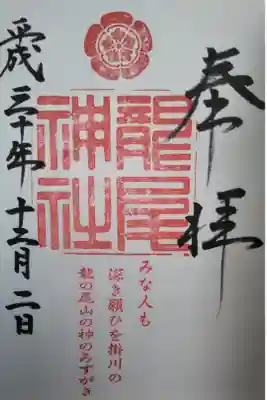 奉拝
龍尾
神社
みな人も
深き願ひを掛川の
龍の尾山の神のみずがき
平成三十年十二月二日